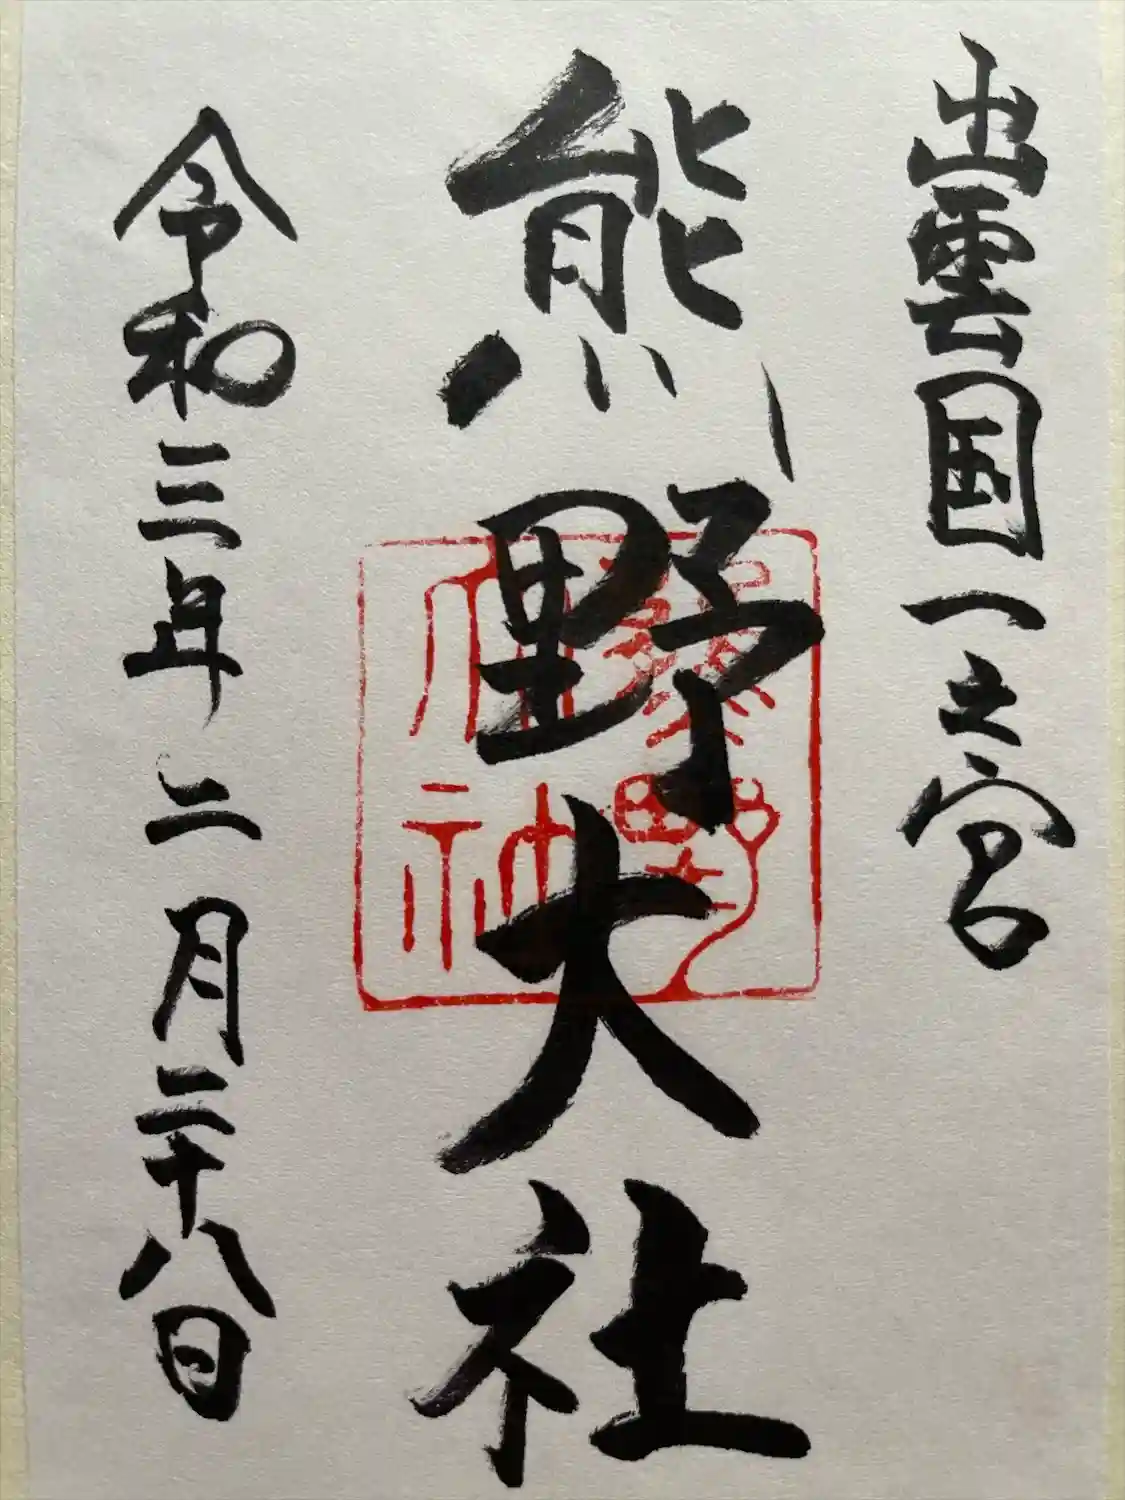 出雲国一之宮
熊野大社
令和三年二月二十八日